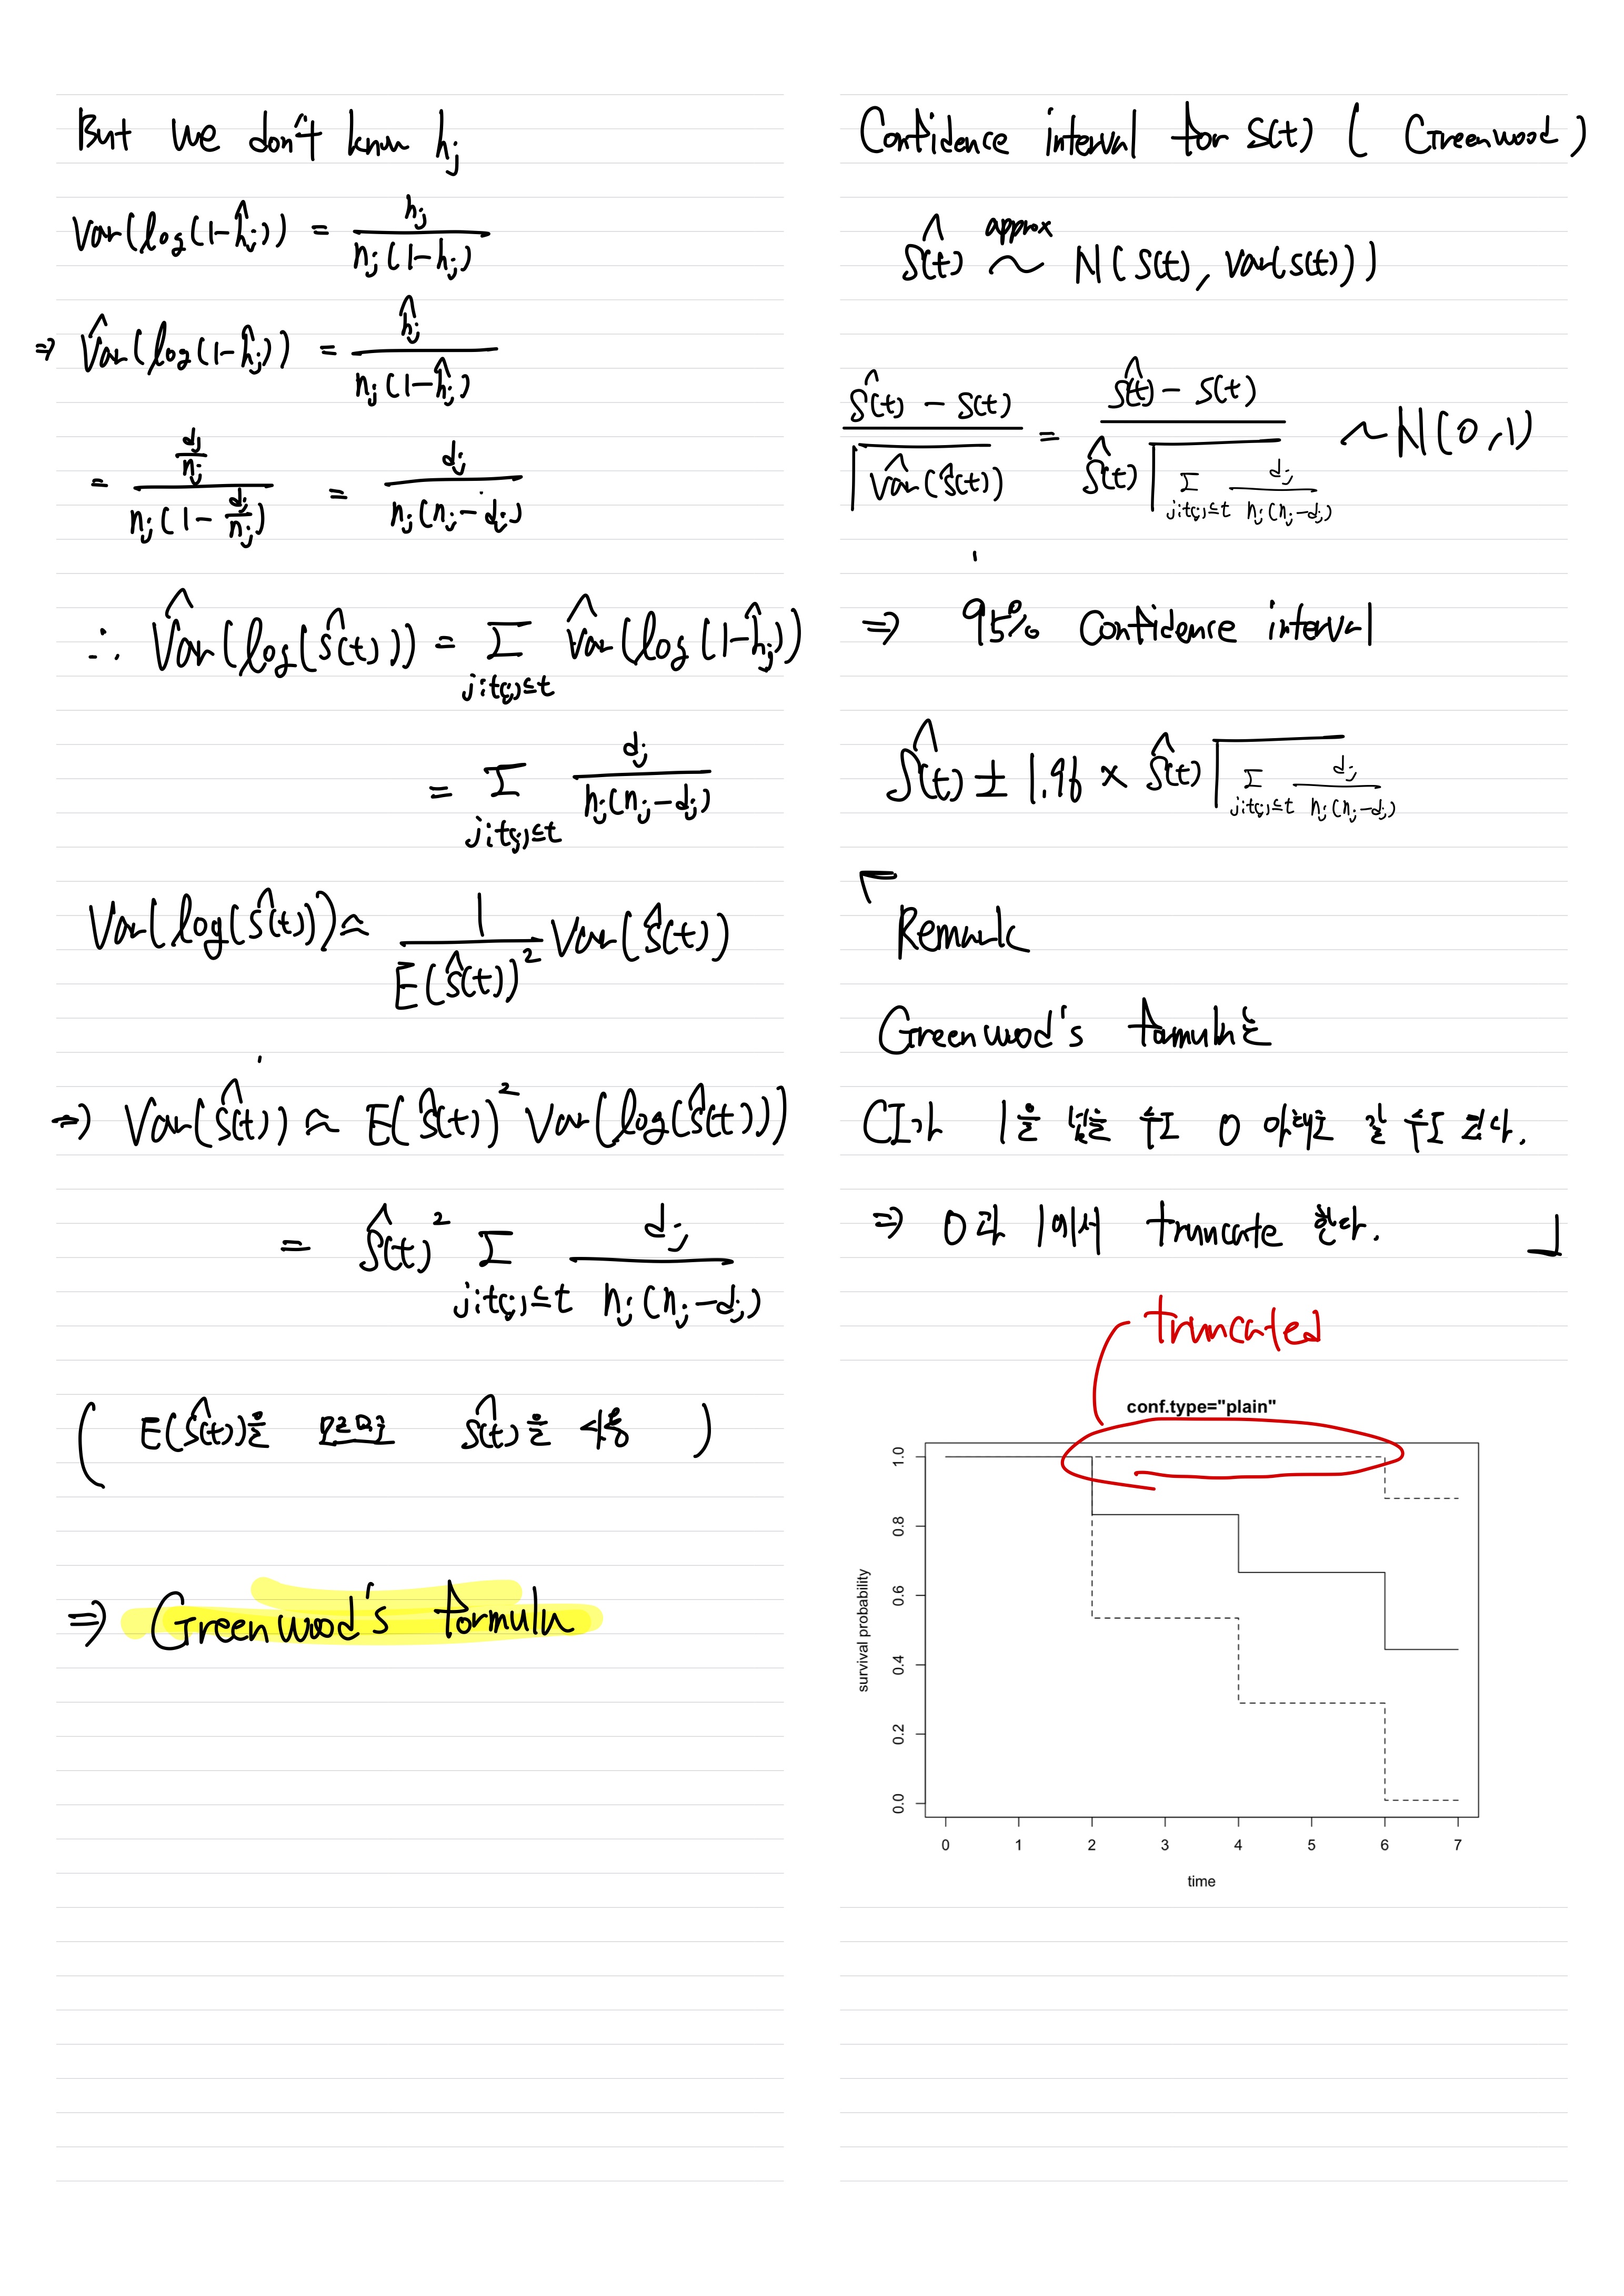 But we don't know hj
Var(log(1-ĥj)) = hj / nj(1-hj)
⇒ V̂ar(log(1-ĥj)) = ĥj / nj(1-ĥj)
= (dj/nj) / nj(1 - dj/nj) = dj / nj(nj-dj)
∴ V̂ar(log(Ŝ(t))) = Σ_{j:t(j)≤t} V̂ar(log(1-ĥj))
= Σ_{j:t(j)≤t} dj / nj(nj-dj)
Var(log(Ŝ(t))) ≈ 1 / E(Ŝ(t))² Var(Ŝ(t))
⇒ Var(Ŝ(t)) ≈ E(Ŝ(t))² Var(log(Ŝ(t)))
= Ŝ(t)² Σ_{j:t(j)≤t} dj / nj(nj-dj)
( E(Ŝ(t))를 모르므로 Ŝ(t)를 사용 )
⇒ Greenwood's formula
Confidence interval for S(t) ( Greenwood )
Ŝ(t) approx ~ N(S(t), Var(S(t)))
Ŝ(t) - S(t) / √V̂ar(Ŝ(t)) = Ŝ(t) - S(t) / Ŝ(t)√Σ_{j:t(j)≤t} dj / nj(nj-dj) ~ N(0,1)
⇒ 95% Confidence interval
Ŝ(t) ± 1.96 × Ŝ(t)√Σ_{j:t(j)≤t} dj / nj(nj-dj)
Remark
Greenwood's formula는
CI가 1을 넘을 수도 0 아래로 갈 수도 있다.
⇒ 0과 1에서 truncate 한다.
truncated
conf.type="plain"
survival probability
1.0
0.8
0.6
0.4
0.2
0.0
0 1 2 3 4 5 6 7
time